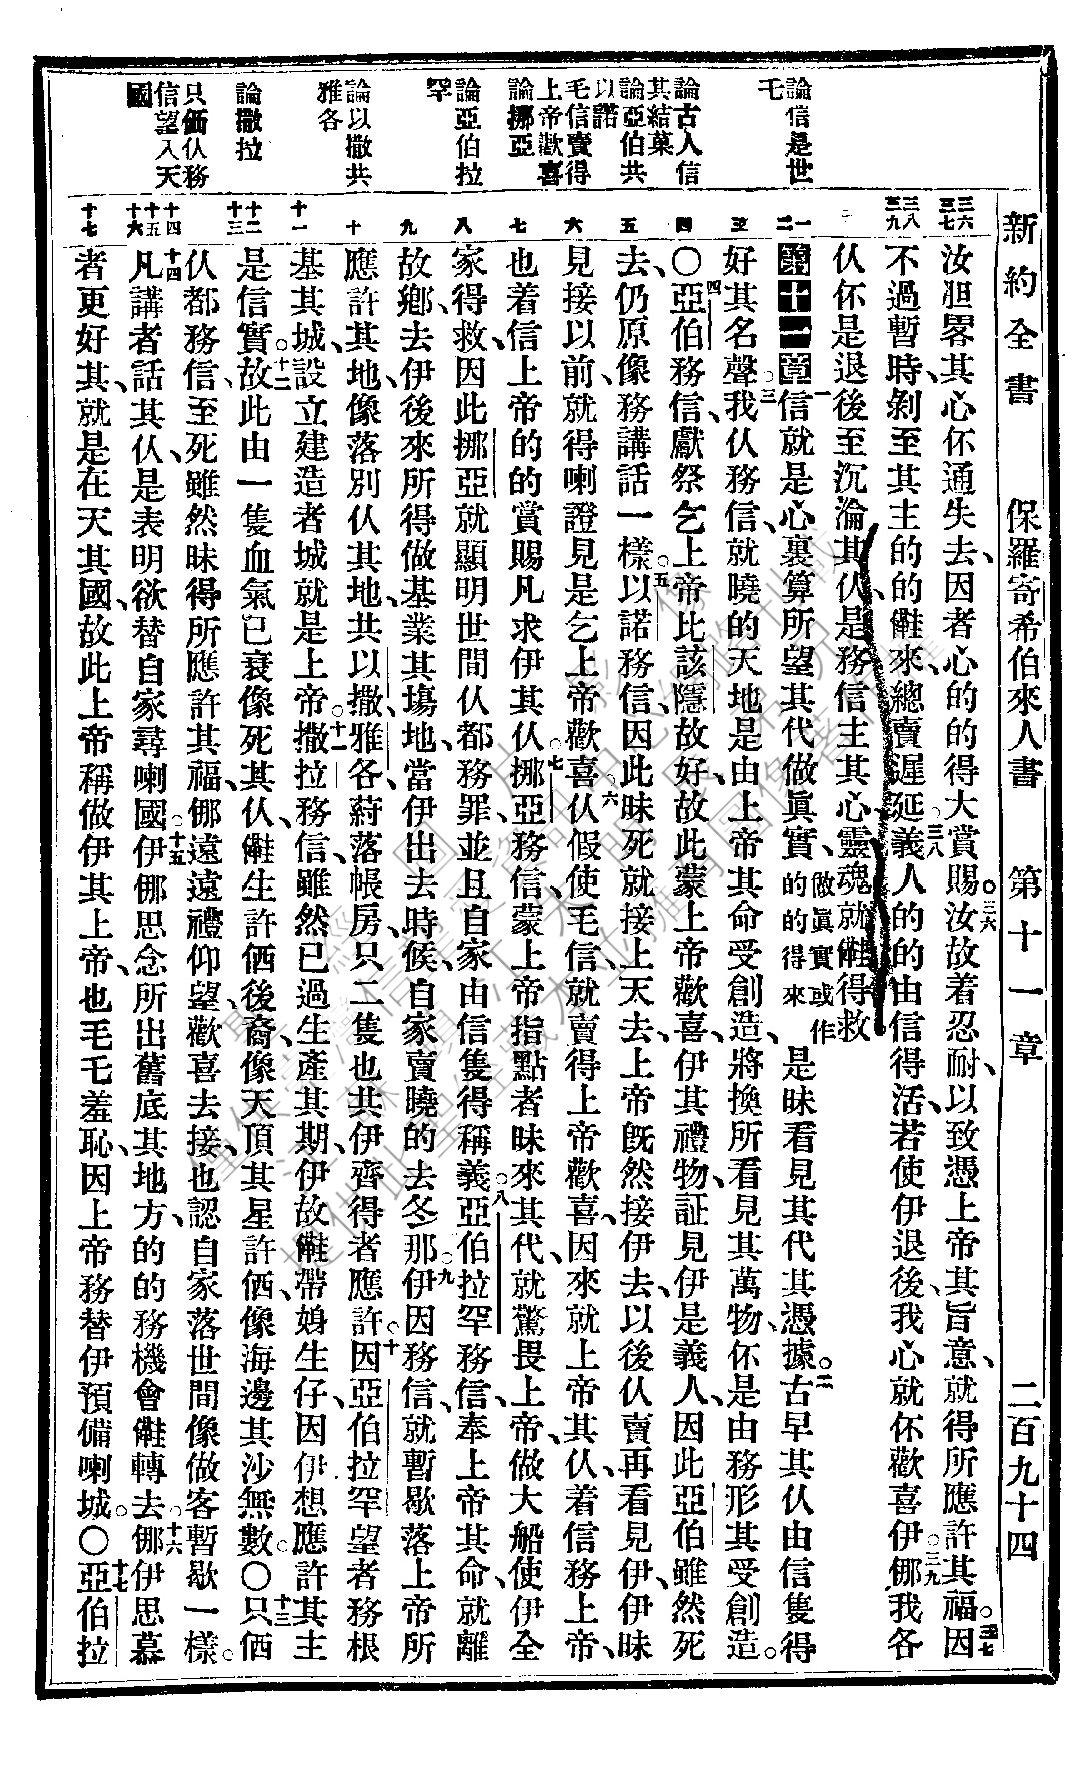 新約全書 保羅寄希伯來人書 第十一章 二百九十四
論信是世乇
論古人信其結菓
論亞伯共以諾
乇信賣得上帝歡喜
論挪亞
論亞伯拉罕
論以撒共雅各
論撒拉
只㑚仈務信望入天國
三六 三七
三八 三九
一 二
三
四
五
六
七
八
九
十
十一
十二 十三
十四 十五 十六
十七
汝胆畧其心伓通失去、因者心的的得大賞賜。三六汝故着忍耐、以致憑上帝其旨意、就得所應許其福。三七因
不過暫時、剝至其主的的𣍐來、總賣遲延。三八義人的的由信得活、若使伊退後、我心就伓歡喜伊。三九那我各
仈伓是退後至沉淪其仈、是務信主其心、靈魂就𣍐得救
第十一章 一信就是心裏算所望其代做眞實、做眞實或作的的得來是昧看見其代其憑據。二古早其仈由信隻得
好其名聲。三我仈務信、就曉的天地是由上帝其命受創造、將換所看見其萬物、伓是由務形其受創造。
〇四亞伯務信、獻祭乞上帝比該隱故好、故此蒙上帝歡喜、伊其禮物、証見伊是義人、因此亞伯雖然死
去、仍原像務講話一樣。五以諾務信、因此昧死就接上天去、上帝旣然接伊去、以後仈賣再看見伊、伊昧
見接以前、就得喇證見是乞上帝歡喜。六仈假使乇信、就賣得上帝歡喜、因來就上帝其仈、着信務上帝、
也着信上帝的的賞賜凡求伊其仈。七挪亞務信、蒙上帝指點者昧來其代、就驚畏上帝、做大船使伊全
家得救、因此挪亞就顯明世間仈都務罪、並且自家由信隻得稱義。八亞伯拉罕務信、奉上帝其命、就離
故鄉、去伊後來所得做基業其塲地、當伊出去時候、自家賣曉的去冬那。九伊因務信、就暫歇落上帝所
應許其地、像落別仈其地、共以撒、雅各、葤落帳房、只二隻也共伊齊得者應許。十因亞伯拉罕望者務根
基其城、設立建造者城就是上帝。十一撒拉務信、雖然已過生產其期、伊故𣍐帶娠生仔、因伊想應許其主
是信實。十二故此由一隻血氣已衰像死其仈、𣍐生許㑚後裔、像天頂其星、許㑚像海邊其沙無數。〇十三只㑚
仈都務信至死、雖然昧得所應許其福、那遠遠禮仰望、歡喜去接、也認自家落世間像做客暫歇一樣。
十四凡講者話其仈、是表明欲替自家尋喇國。十五伊那思念所出舊底其地方、的的務機會𣍐轉去。十六那伊思慕
者更好其、就是在天其國、故此上帝稱做伊其上帝、也乇乇羞恥、因上帝務替伊預備喇城。〇十七亞伯拉